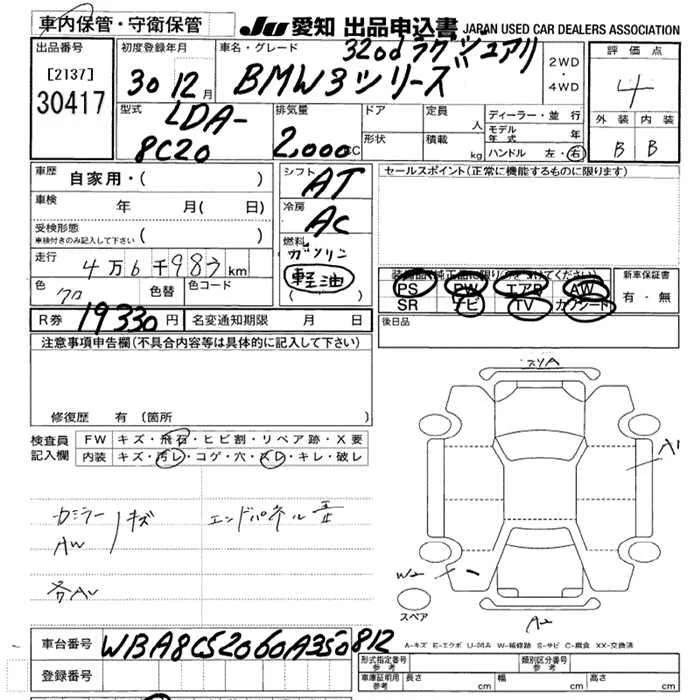 車内保管・守衛保管
JU 愛知 出品申込書 JAPAN USED CAR DEALERS ASSOCIATION
出品番号
[2137]
30417
初度登録年月
30 12月
車名・グレード
320d ラグジュアリ
BMW3シリーズ
2WD
・
4WD
評価点
4
外装 内装
B B
型式
LDA-
8C20
排気量
2,000cc
ドア
形状
定員 人
積載 kg
ディーラー・並行
モデル年式 年
ハンドル 左・右
車歴 自家用・( )
車検 年 月( 日)
受検形態
車検付きのみ記入して下さい ( )
走行 4万6千983km
色 クロ 色替 色コード
R券 19330円 名変通知期限 月 日
シフト AT
冷房 AC
燃料 ガソリン
軽油
( )
セールスポイント(正常に機能するものに限ります)
装備品(純正品に限り○をつけてください)
PS PW エアB AW
SR ナビ TV カワシート
新車保証書
有・無
後日品
注意事項申告欄(不具合内容等は具体的に記入して下さい)
修復歴 有(箇所
検査員
記入欄
FW キズ・飛石・ヒビ割・リペア跡・X要
内装 キズ・汚レ・コゲ・穴・スレ・キレ・破レ
キズ
AW
エンドパネル
各AW
スリA
A1
W2
スペア
A-キズ E-エクボ U-凹A W-補修跡 S-サビ C-腐食 XX-交換済
車台番号 WBA8C52060A350812
登録番号
形式指定番号
参考
類別区分番号
参考
車庫証明用
参考
長さ cm 幅 cm 高さ cm